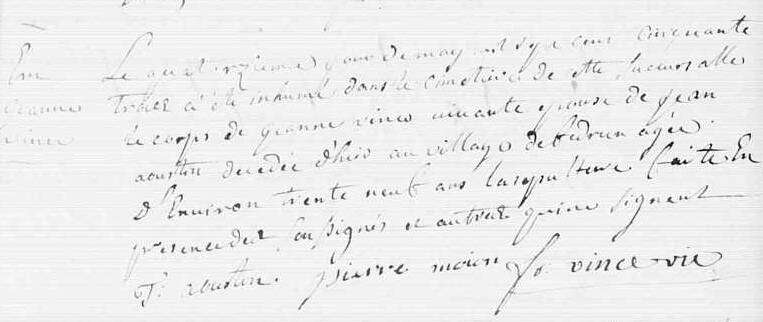 Em
jeanne
vince
Le quatorzieme jour de may mil sept cens cinquante
trois a été inhumé dans le cimetiere de cette succursalle
le corps de jeanne vince vivante epouse de jean
aoustin decedée d'hier au village de bedrun agée
d'Environ trente neuf ans la sepulture faite En
presence des soussignés et autres qui ne signent
J. aoustin. pierre moion fr. vince vic